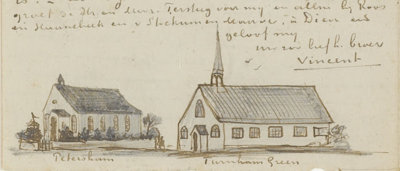 groet de Hr. en Mevr. Tersteeg voor mij en allen bij Roos
en Haanebeek en v Stockum en Caroline, à Dieu en
geloof mij
uw zoo liefh. broer
Vincent
Petersham
Turnham Green